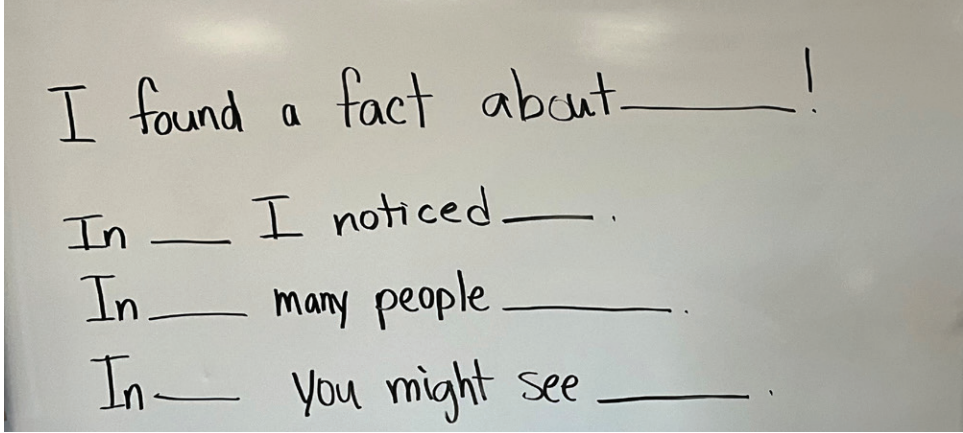 I found a fact about______!
In ___ I noticed ___.
In ____ many people ______.
In ___ you might see _____.